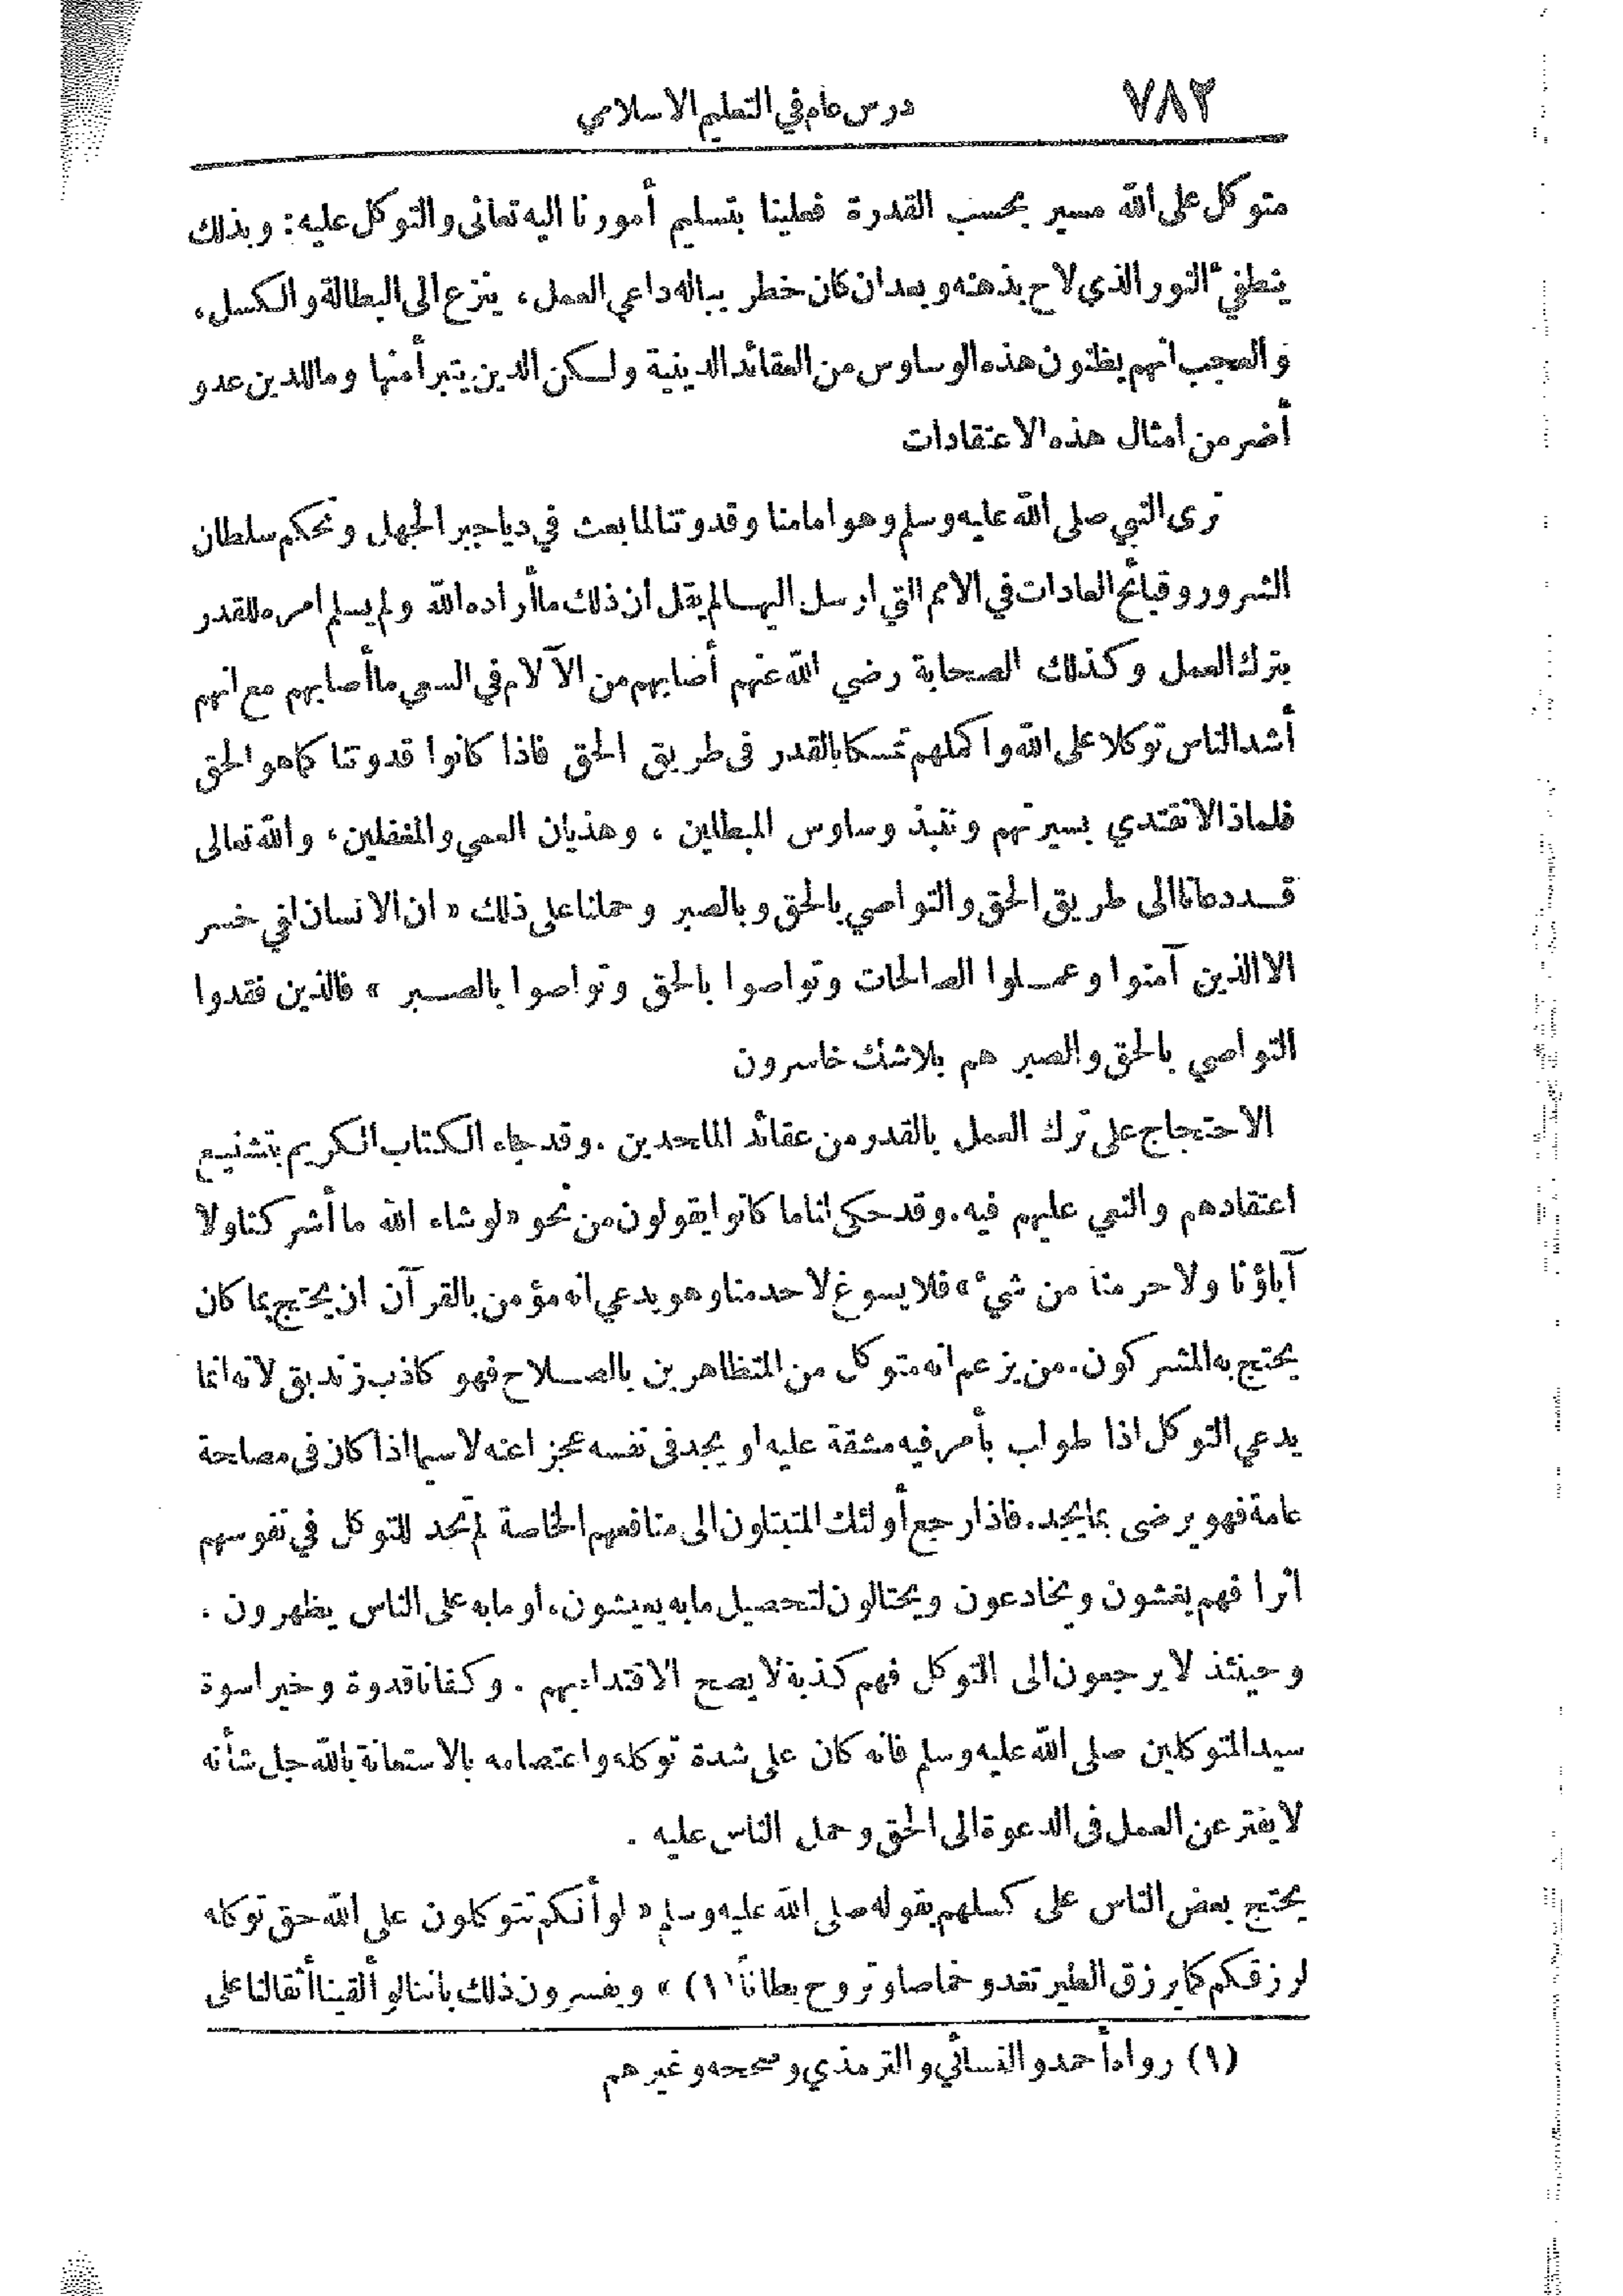 ٧٨٢
درس عام في التعليم الاسلامي
متوكل على الله مسير بحسب القدرة فعلينا بتسليم أمورنا اليه تعالى والتوكل عليه: وبذلك
ينطفيء النور الذي لاح بذهنه وبعد ان كان خطر بباله داعي العمل، ينزع الى البطالة والكسل،
والعجب انهم يظنون هذه الوساوس من العقائد الدينية ولكن الدين يتبرأ منها وما للدين عدو
أضر من امثال هذه الاعتقادات
نرى النبي صلى الله عليه وسلم وهو امامنا وقدوتنا لما بعث في دياجير الجهل وتحكم سلطان
الشرور وقبائح العادات في الامم التي ارسل اليها لم يقل أن ذلك ما أراده الله ولم يسلم امره للقدر
بترك العمل وكذلك الصحابة رضي الله عنهم أصابهم من الآلام في السعي ما أصابهم مع انهم
أشد الناس توكلا على الله واكملهم تمسكا بالقدر في طريق الحق فاذا كانوا قدوتنا كما هو الحق
فلماذا لا نقتدي بسيرتهم وننبذ وساوس المبطلين ، وهذيان العمي والمغفلين، والله تعالى
قد دعانا الى طريق الحق والتواصي بالحق وبالصبر وحملنا على ذلك « ان الانسان لفي خسر
الا الذين آمنوا وعملوا الصالحات وتواصوا بالحق وتواصوا بالصبر » فالذين فقدوا
التواصي بالحق والصبر هم بلا شك خاسرون
الاحتجاج على ترك العمل بالقدر من عقائد الملحدين . وقد جاء الكتاب الكريم بتشنيع
اعتقادهم والنعي عليهم فيه. وقد حكى لنا ما كانوا يقولون من نحو « لو شاء الله ما أشركنا ولا
آباؤنا ولا حرمنا من شيء » فلا يسوغ لاحد منا وهو يدعي انه مؤمن بالقرآن ان يحتج بما كان
يحتج به المشركون. من يزعم انه متوكل من المتظاهرين بالصلاح فهو كاذب زنديق لانه انما
يدعي التوكل اذا طولب بأمر فيه مشقة عليه او يجد في نفسه عجزا عنه لا سيما اذا كان في مصلحة
عامة فهو يرضى بما يجد. فاذا رجع أولئك المتبتلون الى منافعهم الخاصة لم تجد للتوكل في نفوسهم
اثرا فهم يغشون ويخادعون ويحتالون لتحصيل ما به يعيشون، او ما به على الناس يظهرون .
وحينئذ لا يرجعون الى التوكل فهم كذبة لا يصح الاقتداء بهم . وكفانا قدوة وخير اسوة
سيد المتوكلين صلى الله عليه وسلم فانه كان على شدة توكله واعتصامه بالاستعانة بالله جل شأنه
لا يفتر عن العمل في الدعوة الى الحق وحمل الناس عليه .
يحتج بعض الناس على كسلهم بقوله صلى الله عليه وسلم « لو أنكم تتوكلون على الله حق توكله
لرزقكم كما يرزق الطير تغدو خماصا وتروح بطاناً (١) » ويفسرون ذلك باننا لو ألقينا أثقالنا على
(١) رواه أحمد والنسائي والترمذي وصححه وغيرهم